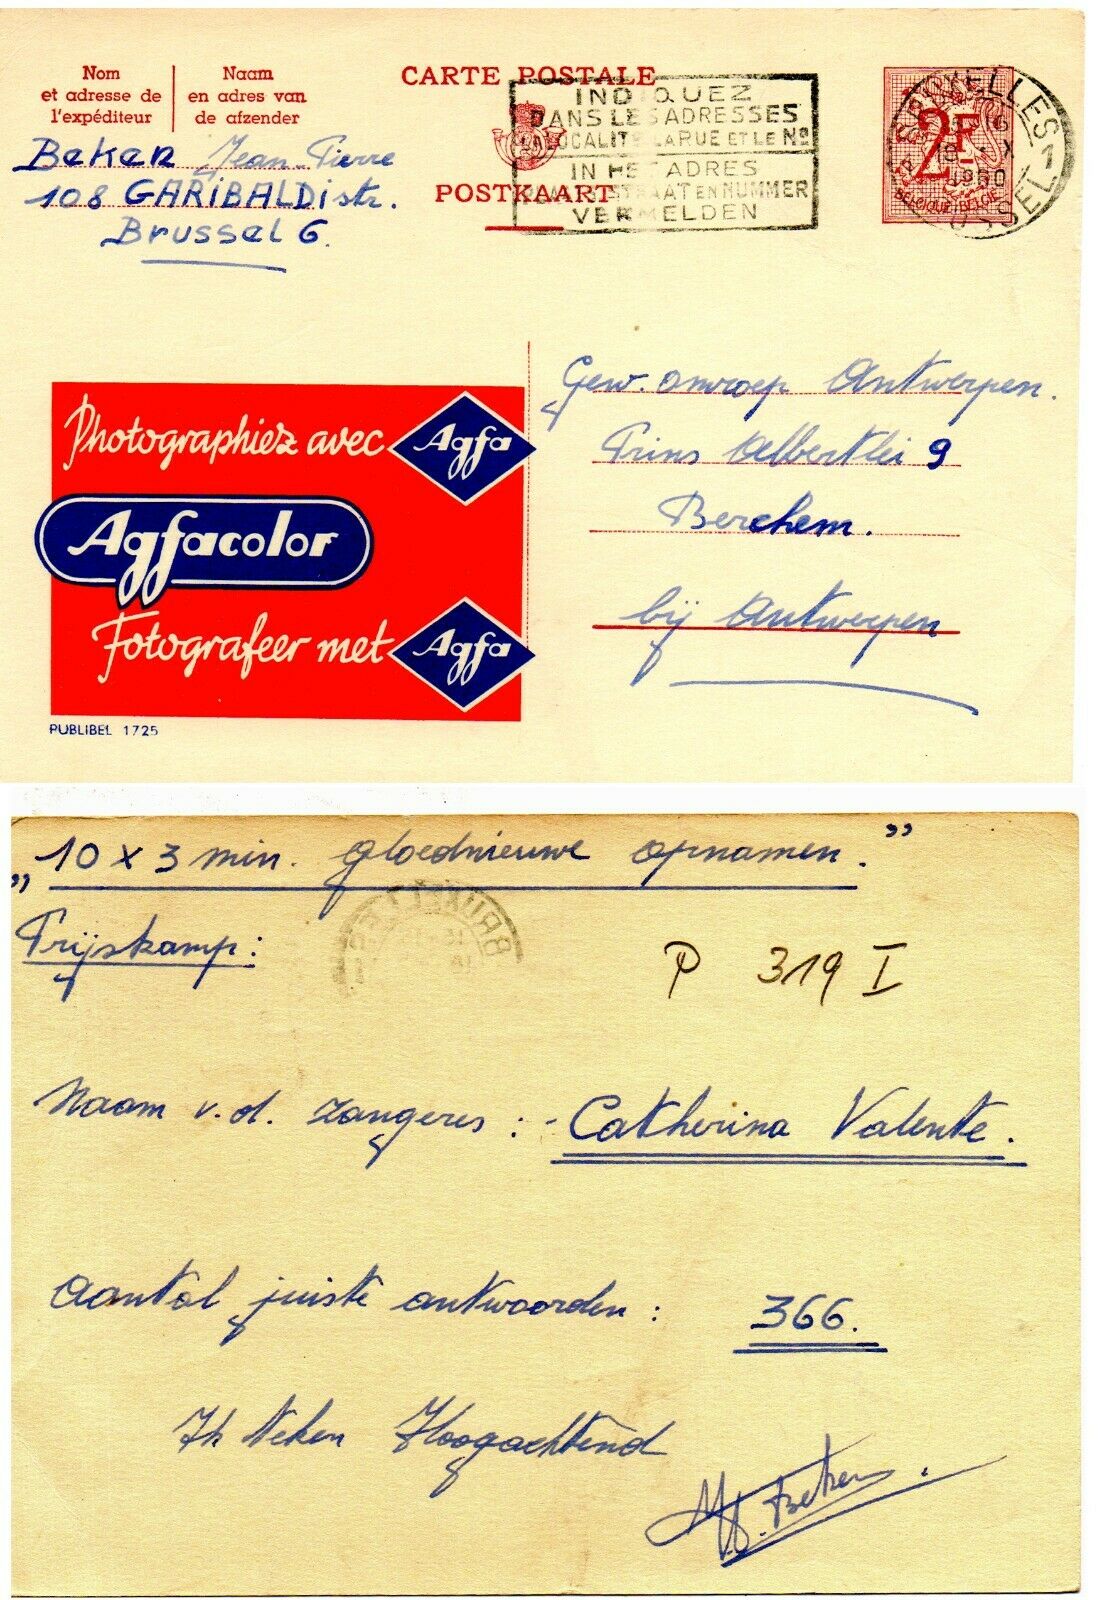 Nom
et adresse de
l'expéditeur
Naam
en adres van
de afzender
CARTE POSTALE
POSTKAART
INDIQUEZ
DANS LES ADRESSES
LA LOCALITE LA RUE ET LE No
IN HET ADRES
STRAAT EN NUMMER
VERMELDEN
BRUXELLES 1
BRUSSEL 1
1960
2F
BELGIQUE-BELGIE
Beken Jean-Pierre
108 GARIBALDIstr.
Brussel 6.
Gew. omroep Antwerpen.
Prins Albertlei 9
Berchem.
bij Antwerpen
Photographiez avec Agfa
Agfacolor
Fotografeer met Agfa
PUBLIBEL 1725
„10 x 3 min. gloednieuwe opnamen.”
Prijskamp:
BRUXELLES
P 319 I
Naam v. d. zangeres : - Catherina Valente.
Aantal juiste antwoorden : 366.
Ik teken Hoogachtend
Beken